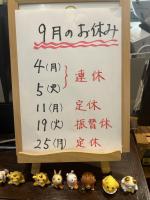 9月のお休み
4(月)
5(火) } 連休
11(月) 定休
19(火) 振替休
25(月) 定休